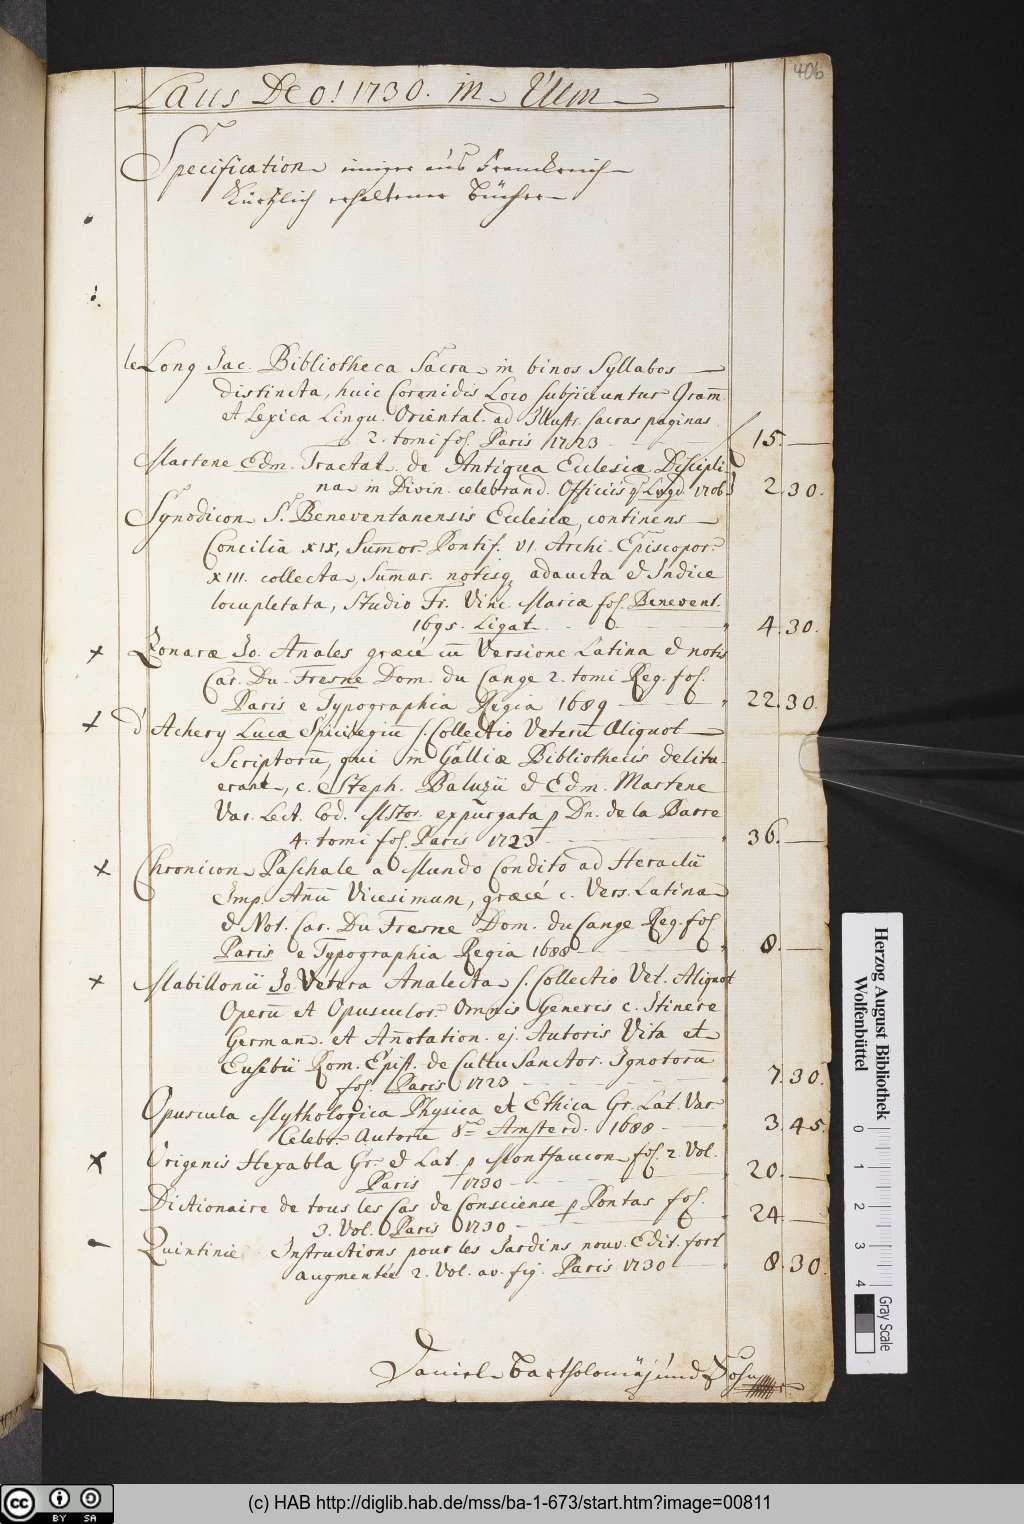 406
Laus Deo! 1730. in Ulm
Specification einiger aus Franckreich
Kürtzlich erhaltener Bücher
le Long Jac. Bibliotheca Sacra in binos Syllabos
distincta, huic Coronidis Loco subjiciuntur Gram̄.
et Lexica Lingu. Oriental. ad Illustr. sacras paginas
2. tomi fol. Paris 1723 15.
Martene Edm. Tractat. de Antiqua Ecclesiæ Discipli
na in Divin. celebrand. Officiis 4º Lugd 1706 2.30.
Synodicon S. Beneventanensis Ecclesiæ, continens
Concilia XIX, Sum̄or. Pontif. VI. Archi-Episcopor.
XIII. collecta, Sum̄ar. notisq. adaucta & Indice
locupletata, studio Fr. Vinc. Mariæ fol. Benevent.
1695. Ligat. 4.30.
Zonaræ Jo. An̄ales græcè cū Versione Latina & notis
Car. Du-Fresne Dom. du Cange 2. tomi Reg. fol.
Paris e Typographia Regia 1689 22.30.
d'Achery Lucæ Spicilegiū s. Collectio Veterū Aliquot
Scriptorū, qui in Galliæ Bibliothecis delitu-
erant, c. Steph. Baluzii & Edm. Martene
Var. Lect. Cod. Mstor. expurgata p Dn. de la Barre
4. tomi fol. Paris 1723 36.
Chronicon Paschale a Mundo Condito ad Heraclii
Imp. An̄ū Vicesimum, græcé c. Vers. Latina
& Not. Car. Du Fresne Dom. du Cange Reg. fol
Paris e Typographia Regia 1688 8.
Mabillonii Jo. Vetera Analecta s. Collectio Vet. Aliquot
Operū et Opusculor. Om̄is Generis c. Itinere
German. et An̄otation. ej. Autoris Vita et
Eusebii Rom. Epist. de Cultu Sanctor. Ignotorū
fol. Paris 1723 7.30.
Opuscula Mythologica Physica et Ethica Gr. Lat. Var.
Celebr. Autorū 8vo Amsterd. 1688 3.45.
Origenis Hexabla Gr. & Lat. p Montfaucon fol. 2. Vol.
Paris 1730 20.
Dictionaire de tous les Cas de Consciense p Pontas fol.
3. Vol. Paris 1730 24
Quintinie Instructions pour les Jardins nouv. Edit. fort
augmentée 2. Vol. av. fig. Paris 1730 8.30.
Daniel Bartholomäj und Sohn
Herzog August Bibliothek
Wolfenbüttel
0 1 2 3 4
Gray Scale
cc BY SA
(c) HAB http://diglib.hab.de/mss/ba-1-673/start.htm?image=00811